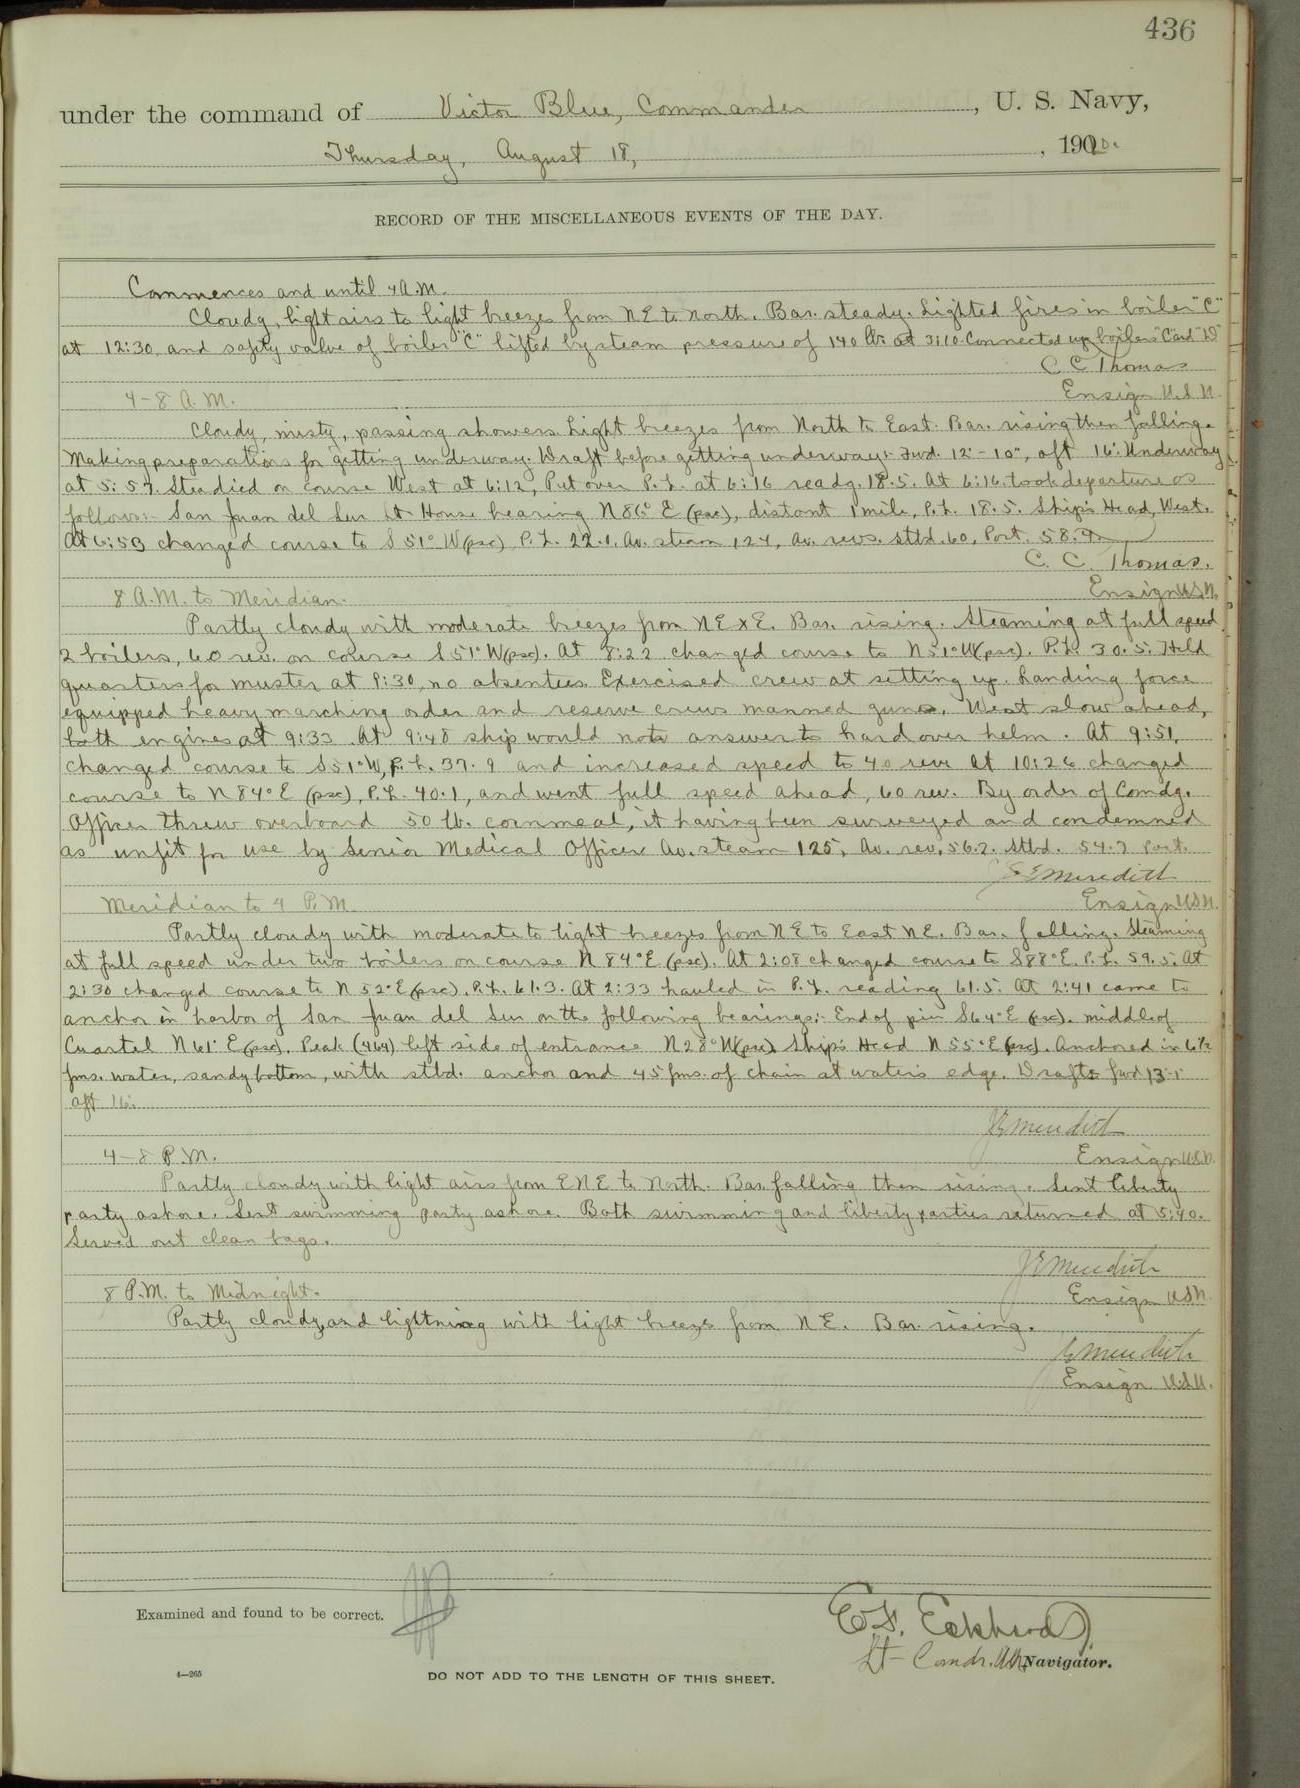 436
under the command of Victor Blue, Commander, U. S. Navy,
Thursday, August 18, 1910.
RECORD OF THE MISCELLANEOUS EVENTS OF THE DAY.
Commences and until 4 A.M.
Cloudy, light airs to light breezes from NE to North. Bar. steady. Lighted fires in boiler "C"
at 12:30 and safety valve of boiler "C" lifted by steam pressure of 140 lbs at 3:10. Connected up boilers "C" and "D"
C C Thomas
Ensign U.S.N.
4-8 A.M.
Cloudy, misty, passing showers. Light breezes from North to East. Bar. rising then falling.
Making preparations for getting underway. Draft before getting underway:- Fwd. 12'-10", aft 16'. Underway
at 5:57. Steadied on course West at 6:12, Put over P.L. at 6:16 readg. 18.5. At 6:16 took departure as
follows:- San Juan del Sur Lt. House bearing N 86° E (psc), distant 1 mile, P.L. 18.5. Ship's Head, West.
At 6:53 changed course to S 51° W (psc) P.L. 22.1. Av. steam 124, Av. revs. stbd. 60, Port. 58.9
C. C. Thomas.
Ensign U.S.N.
8 A.M. to Meridian.
Partly cloudy with moderate breezes from NExE. Bar. rising. Steaming at full speed
2 boilers, 60 rev. on course S 51° W (psc). At 8:22 changed course to N 51° W (psc). P.L. 30.5. Held
quarters for muster at 9:30, no absentees. Exercised crew at setting up. Landing force
equipped heavy marching order and reserve crews manned guns. Went slow ahead,
both engines at 9:33. At 9:48 ship would not answer to hard over helm. At 9:51,
changed course to S 51° W, P.L. 37.9 and increased speed to 40 revs. At 10:26 changed
course to N 84° E (psc), P.L. 40.1, and went full speed ahead, 60 rev. By order of Comdg.
Officer threw overboard 50 lb. cornmeal, it having been surveyed and condemned
as unfit for use by Senior Medical Officer. Av. steam 125, Av. rev. 56.2. Stbd. 54.7 Port.
J E Meredith
Ensign U.S.N.
Meridian to 4 P.M.
Partly cloudy with moderate to light breezes from NE to East NE. Bar. falling. Steaming
at full speed under two boilers on course N 84° E (psc). At 2:08 changed course to S 88° E. P.L. 59.5. At
2:30 changed course to N 52° E (psc). P.L. 61.3. At 2:33 hauled in P.L. reading 61.5. At 2:41 came to
anchor in harbor of San Juan del Sur on the following bearings:- End of pier S 64° E (psc). middle of
Cuartel N 61° E (psc). Peak (464) left side of entrance N 28° W (psc). Ship's Head N 55° E (psc). Anchored in 6½
fms. water, sandy bottom, with stbd. anchor and 45 fms. of chain at water's edge. Drafts fwd 13'-1"
aft 16'.
J E Meredith
Ensign U.S.N.
4-8 P.M.
Partly cloudy with light airs from ENE to North. Bar. falling then rising. Sent liberty
party ashore. Sent swimming party ashore. Both swimming and liberty parties returned at 5:40.
Served out clean bags.
J E Meredith
Ensign U.S.N.
8 P.M. to Midnight.
Partly cloudy and lightning with light breezes from NE. Bar. rising.
J E Meredith
Ensign U.S.N.
Examined and found to be correct.
E. F. Eckhardt
Lt-Comdr. U.S.N. Navigator.
4—265
DO NOT ADD TO THE LENGTH OF THIS SHEET.